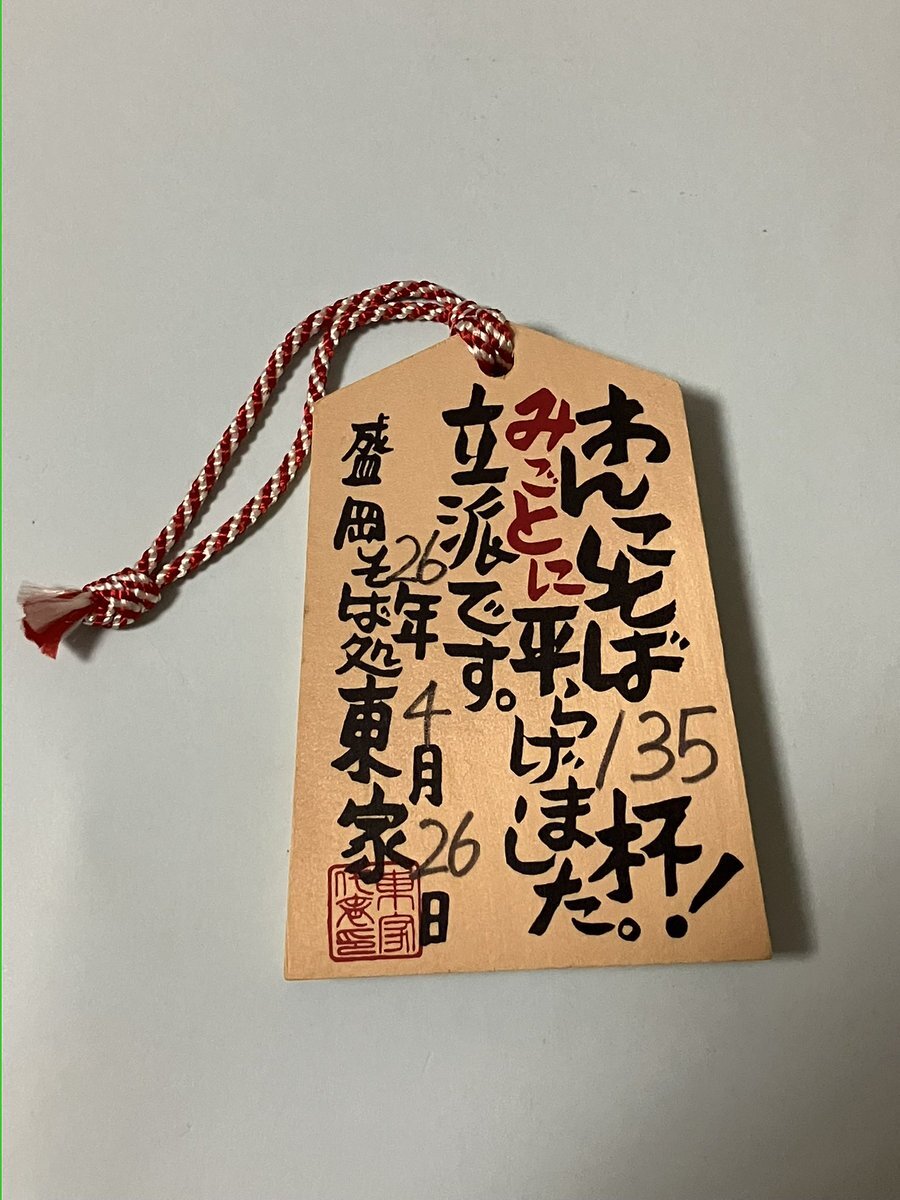 わんこそば135杯！
みごとに平らげました。
立派です。
26年4月26日
盛岡そば処東家
東家
代表印